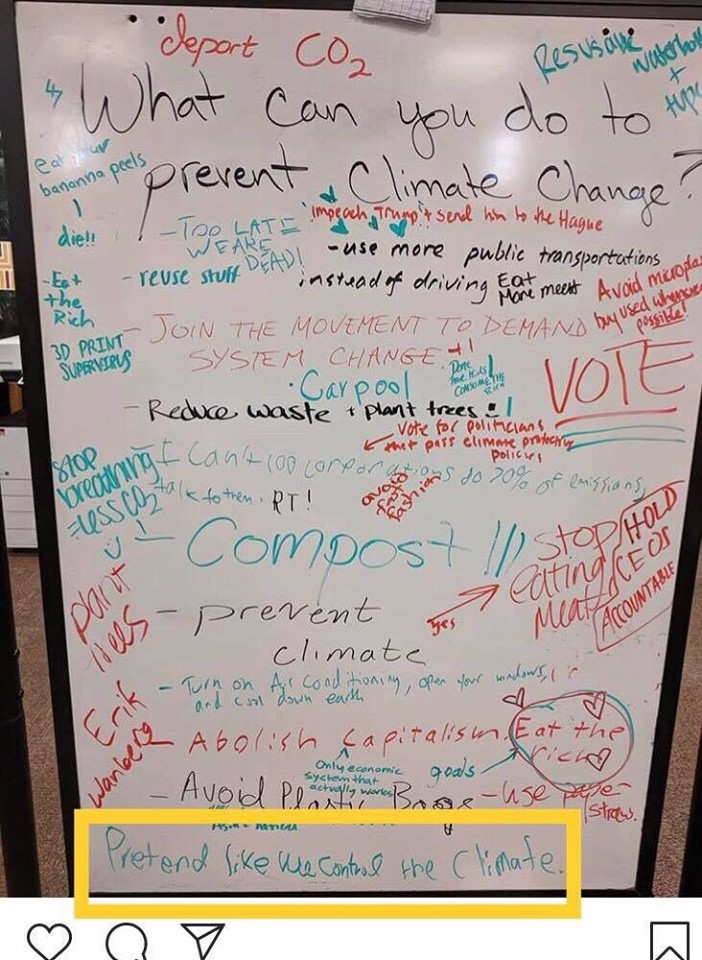 deport CO2
Resusable waterbott
+
What can you do to
prevent Climate Change?
eat your
bananna peels
die!!
- Too LATE
WE ARE
DEAD!
Impeach Trump + send him to the Hague
- use more public transportations
instead of driving
- reuse stuff
Eat
More meat
Avoid microplas
buy used whenever
possible!
- Eat
the
Rich
3D PRINT
SUPERVIRUS
- JOIN THE MOVEMENT TO DEMAND
SYSTEM CHANGE
VOTE
· Carpool
- Reduce waste + plant trees!
Vote for politicians
that pass climate protecting
policies
Stop
breathing
=less CO2
I Can't 100 corporations do 70% of emissions,
talk to them. RT!
avoid
fast
fashion
- Compost !!!
stop
eating
meat
yes
HOLD
CEOs
ACCOUNTABLE
plant
trees
- prevent
climate
- Turn on Air Conditioning, open your windows,
and cool down earth
Erik
Wanberg
- Abolish Capitalism
Only economic
system that
actually works
goals
Eat the
rich
- Avoid Plastic Bags
- use paper
straws.
Pretend like we control the Climate.